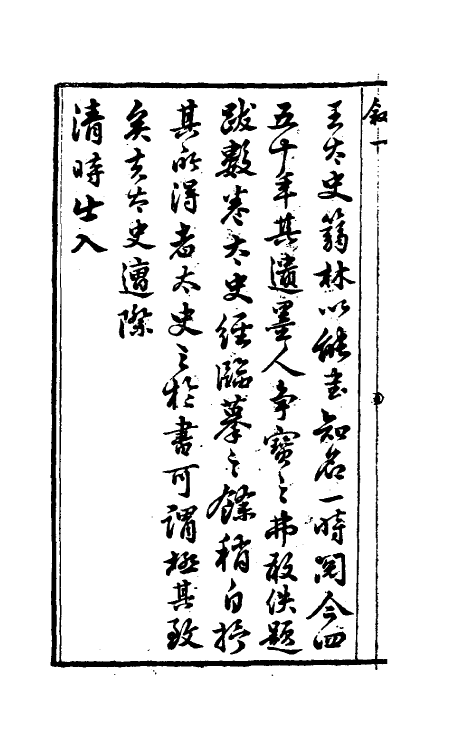 叙一
王太史篛林以能书知名一時閲今四
五十年其遺墨人争寶之弗敢佚題
跋數卷太史經臨摹之餘稍自抒
其所得者太史之於書可謂極其致
矣方太史遭際
清時出入